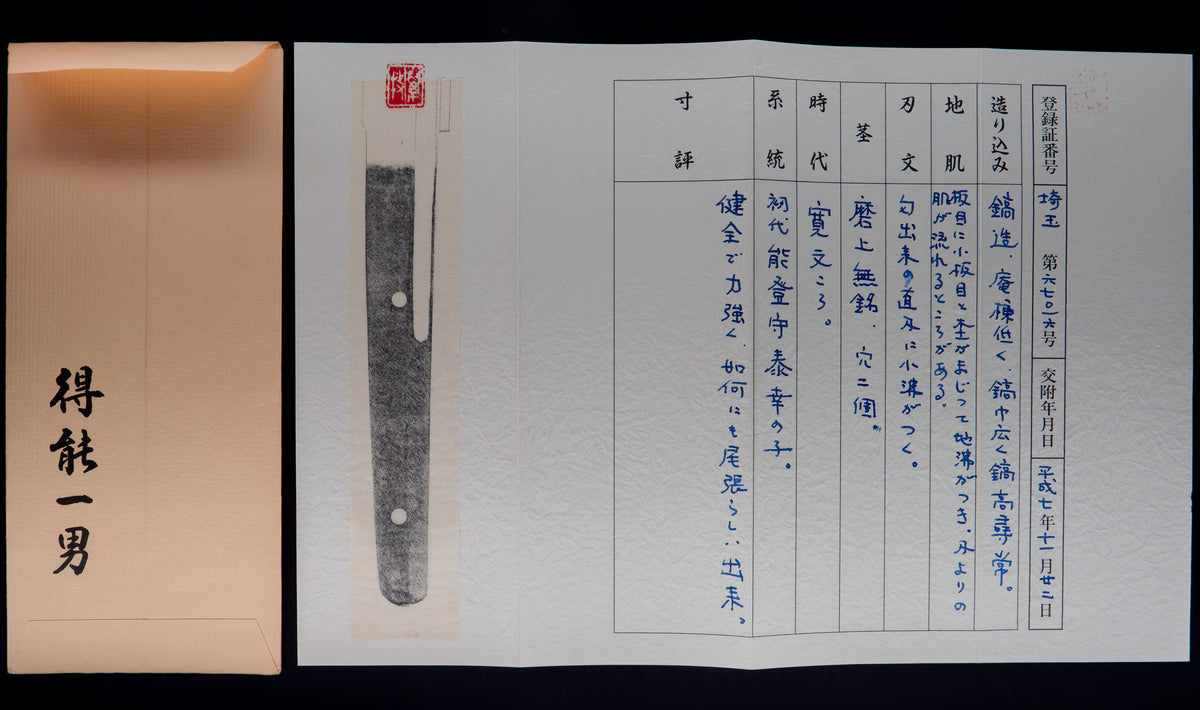 得能一男
登録証番号 埼玉 第六七〇一六号 交附年月日 平成七年十一月廿二日
造り込み 鎬造、庵棟低く、鎬巾広く鎬高尋常。
地肌 板目に小板目と杢がまじって地沸がつき、刃よりの
肌が流れるところがある。
刃文 匂出来の直刃に小沸がつく。
茎 磨上無銘、穴二個。
時代 寛文ころ。
系統 初代能登守泰幸の子。
寸評 健全で力強く、如何にも尾張らしい出来。